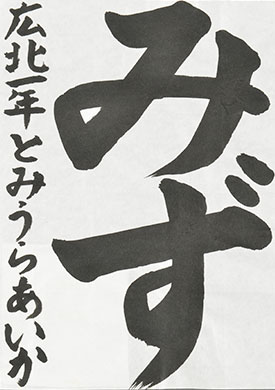 みず
広北一年とみうらあいか